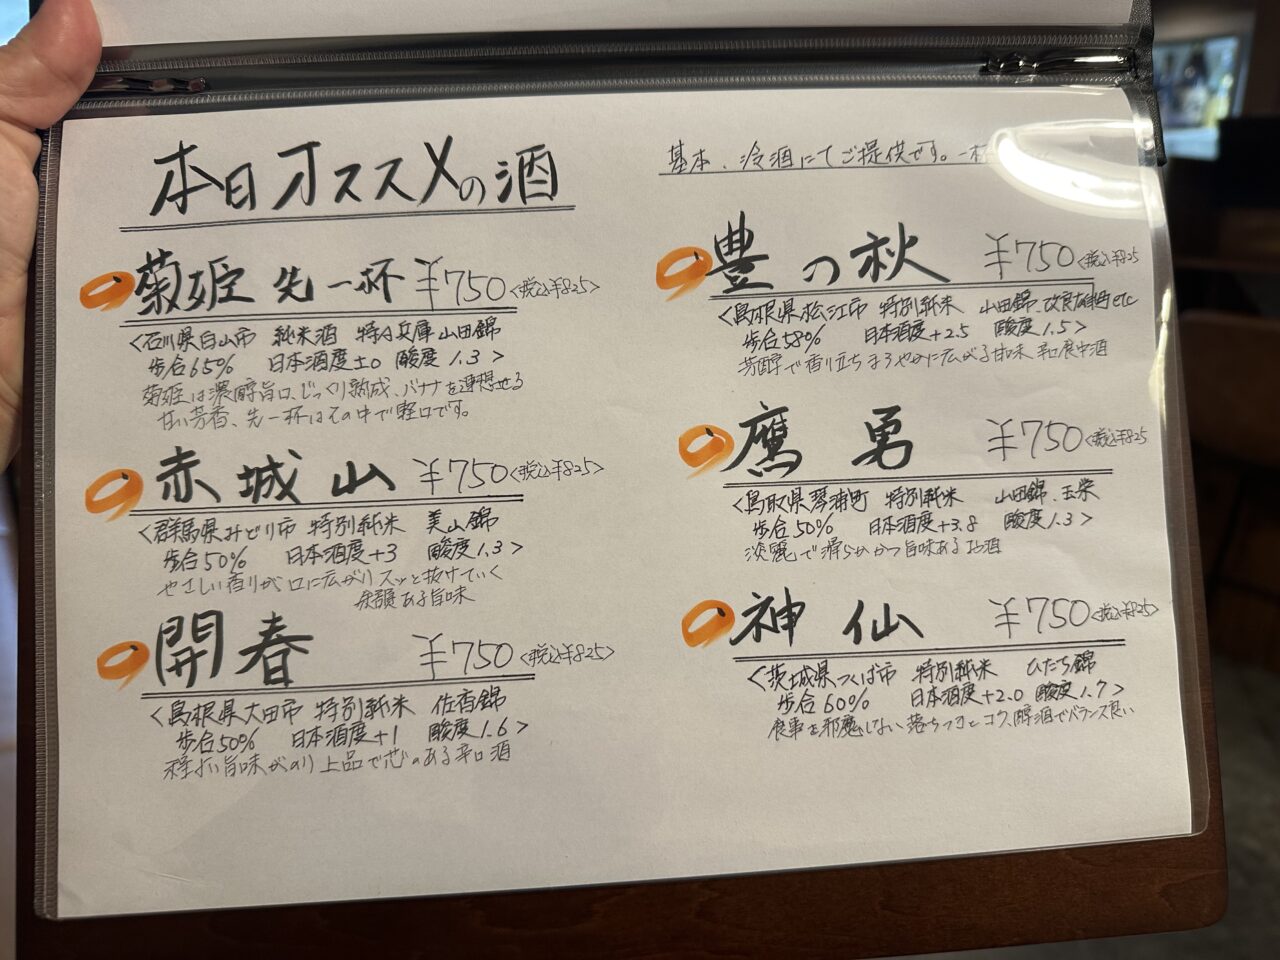 本日オススメの酒
菊姫 先一杯 ¥750<税込¥825>
<石川県白山市 純米酒 特A兵庫山田錦
歩合65% 日本酒度±0 酸度1.3>
菊姫は濃醇旨口、じっくり熟成、バナナを連想せる
甘い芳香、先一杯はその中で軽口です。
赤城山 ¥750<税込¥825>
<群馬県みどり市 特別純米 美山錦
歩合50% 日本酒度+3 酸度1.3>
やさしい香りが口に広がりスッと抜けていく
余韻ある旨味
開春 ¥750<税込¥825>
<島根県大田市 特別純米 佐香錦
歩合50% 日本酒度+1 酸度1.6>
程よい旨味がのり上品で芯のある辛口酒
基本、冷酒にてご提供です。一杯
豊の秋 ¥750<税込¥825
<島根県松江市 特別純米 山田錦、改良雄町etc
歩合58% 日本酒度+2.5 酸度1.5>
芳醇で香り立ちまろやかに広がる甘味
鷹勇 ¥750<税込¥825
<鳥取県琴浦町 特別純米 山田錦、玉栄
歩合50% 日本酒度+3.8 酸度1.3>
淡麗で滑らかかつ旨味あるお酒
神仙 ¥750<税込¥825>
<茨城県つくば市 特別純米 ひたち錦
歩合60% 日本酒度+2.0 酸度1.7>
食事を邪魔しない落ちつきとコク、醇酒でバランス良い